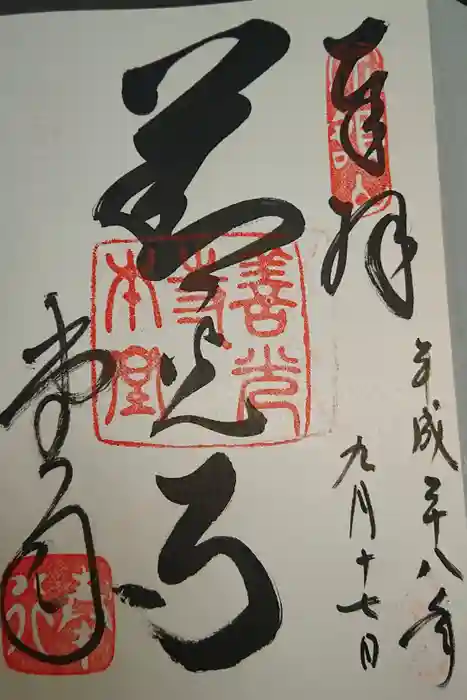 奉拝
平成二十八年
九月十七日
善光寺
善光
寺
本堂